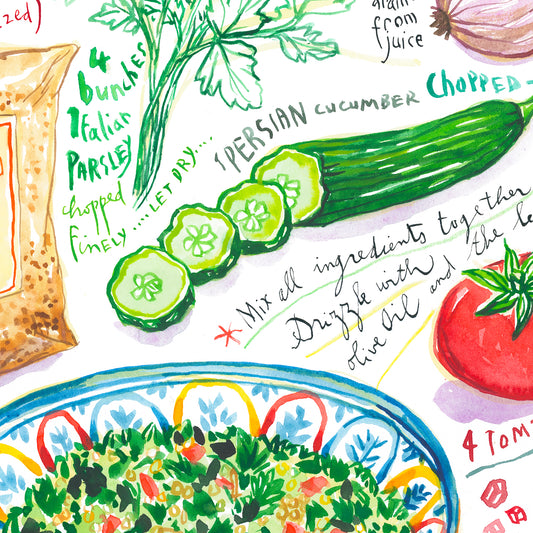 zed)
from
juice
4
bunches
Italian
PARSLEY
chopped
finely .... LET DRY....
1 PERSIAN CUCUMBER CHOPPED-
* Mix all ingredients together
Drizzle with
olive Oil and the le
4 TOM